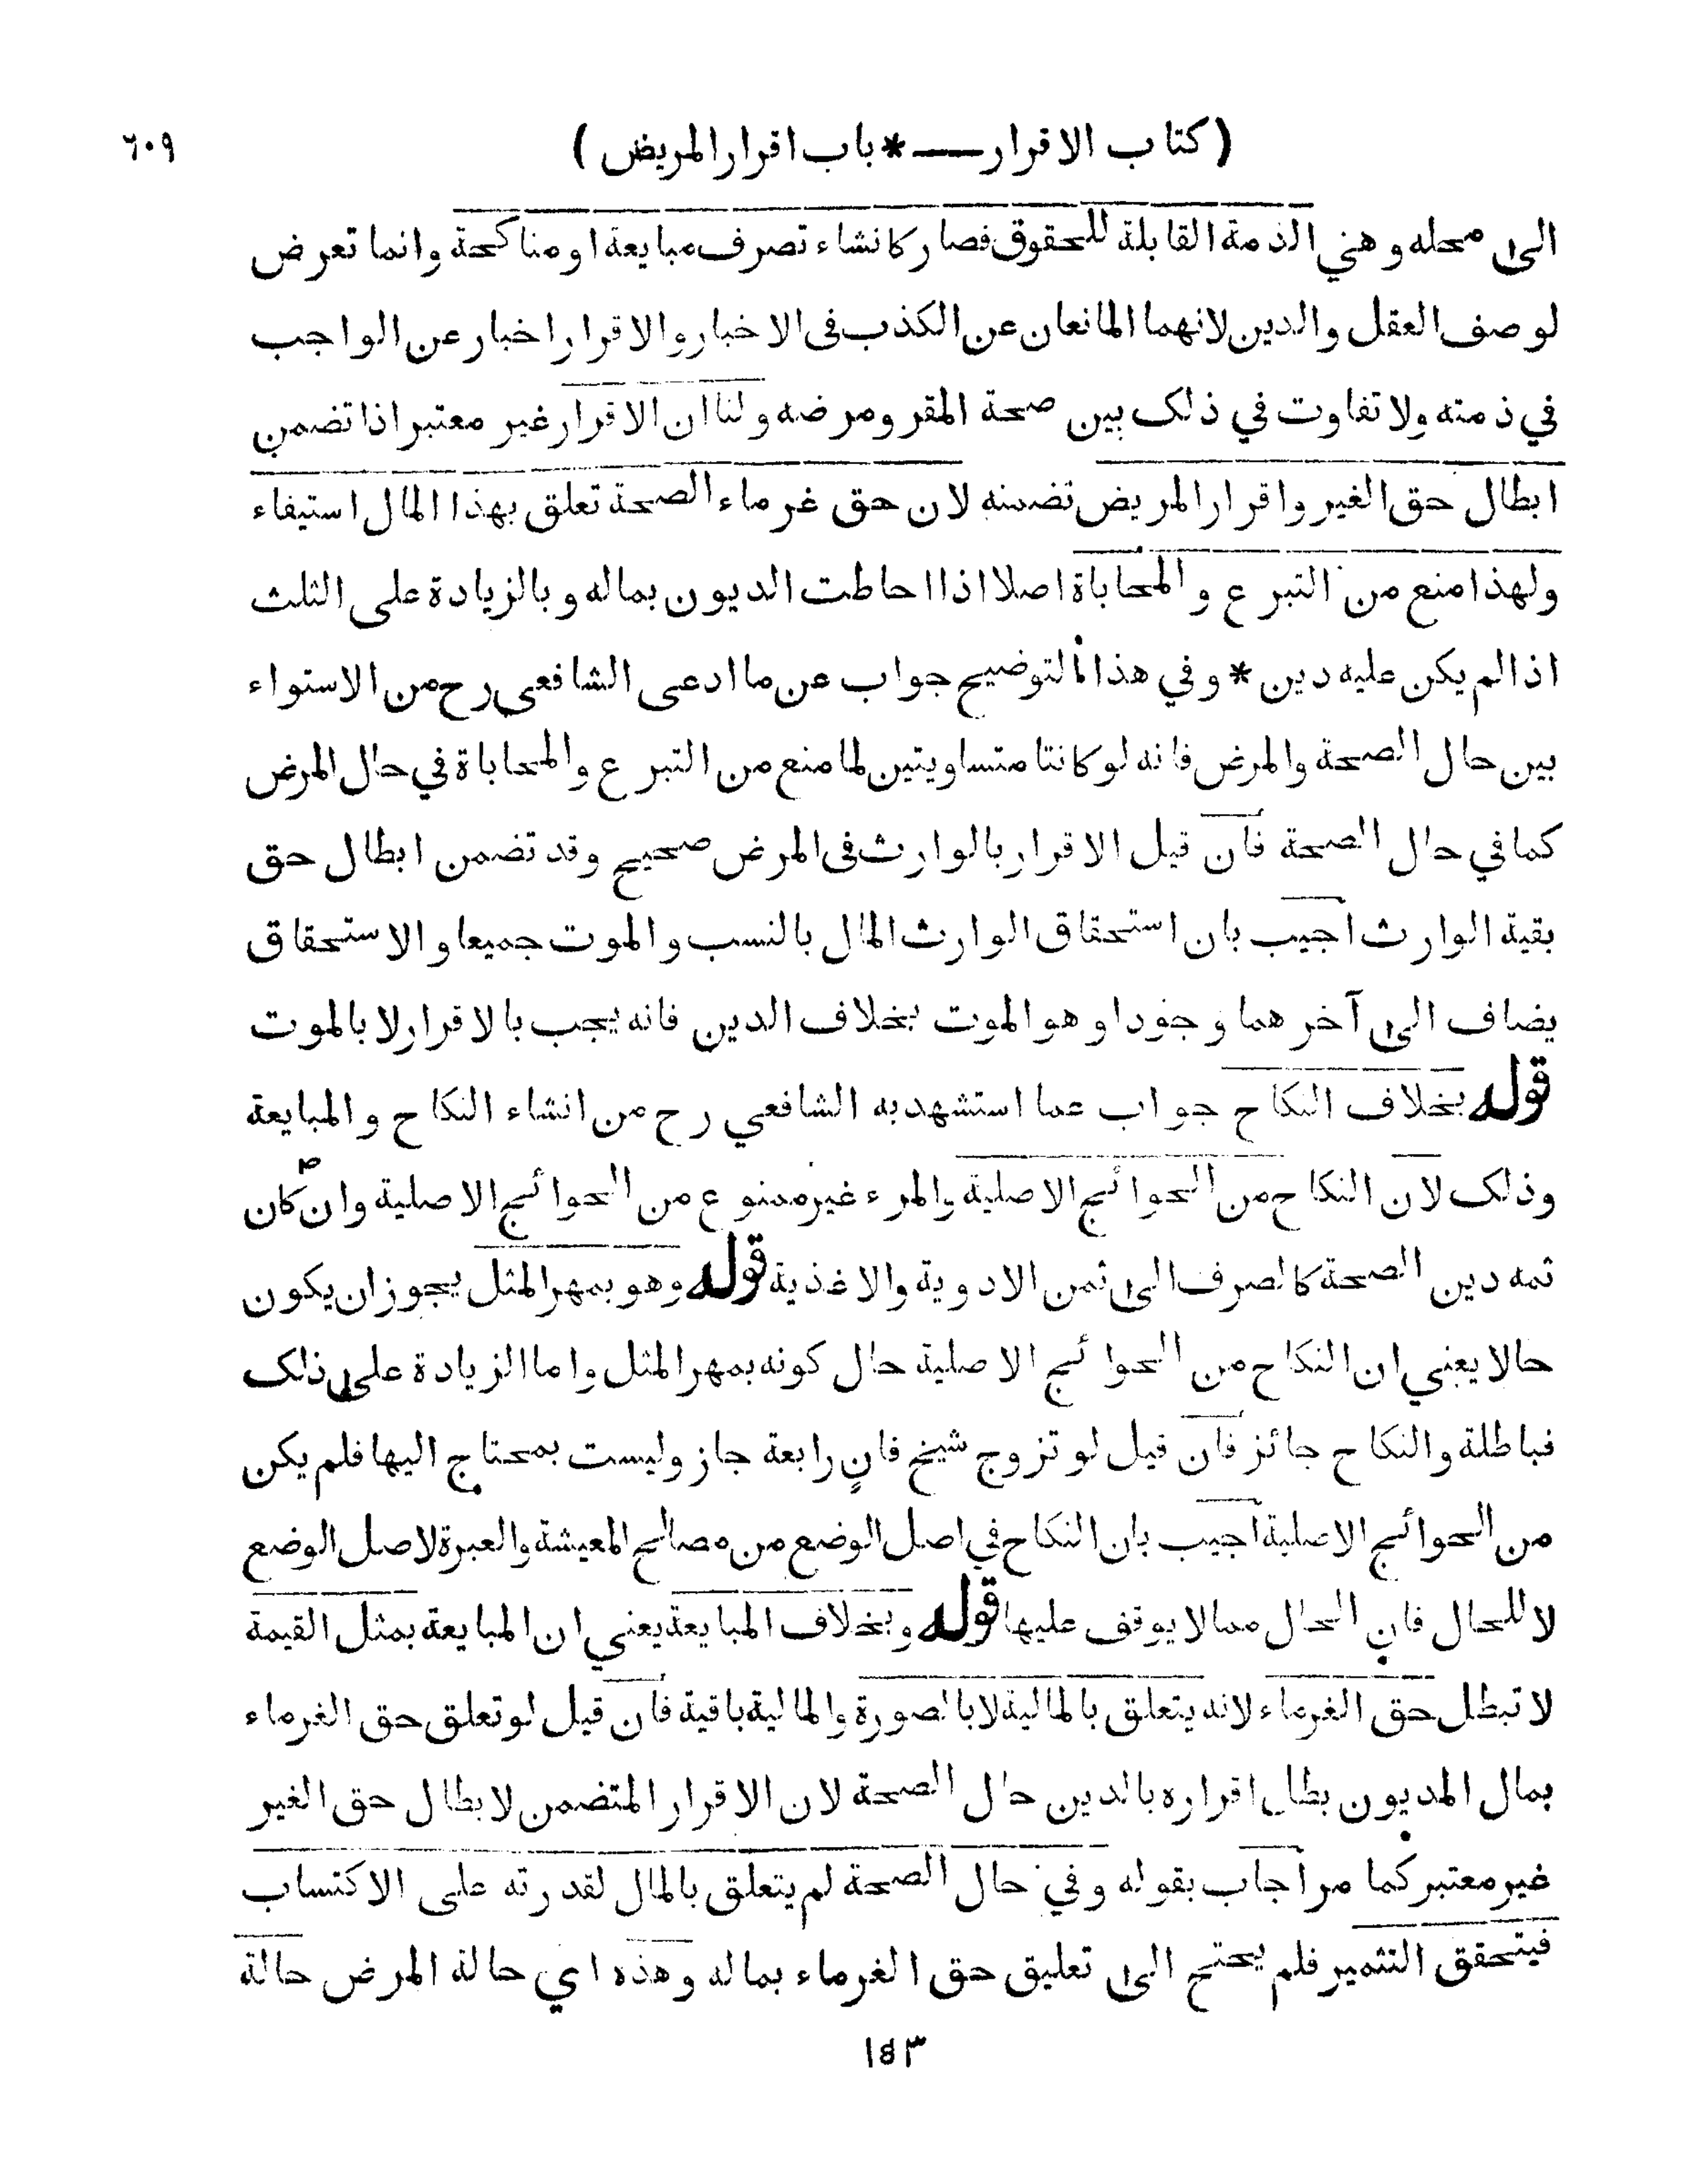 ( كتاب الاقرار — * باب اقرار المريض )
٦٠٩
الى محله وهي الذمة القابلة للحقوق فصار كانشاء تصرف مبايعة او مناكحة وانما تعرض
لوصف العقل والدين لانهما المانعان عن الكذب فى الاخبار والاقرار اخبار عن الواجب
في ذمته ولا تفاوت في ذلك بين صحة المقر ومرضه ولنا ان الاقرار غير معتبر اذا تضمن
ابطال حق الغير واقرار المريض تضمنه لان حق غرماء الصحة تعلق بهذا المال استيفاء
ولهذا منع من التبرع والمحاباة اصلا اذا احاطت الديون بماله وبالزيادة على الثلث
اذا لم يكن عليه دين * وفي هذا التوضيح جواب عن ما ادعى الشافعى رح من الاستواء
بين حال الصحة والمرض فانه لو كانتا متساويتين لما منع من التبرع والمحاباة في حال المرض
كما في حال الصحة فان قيل الاقرار بالوارث فى المرض صحيح وقد تضمن ابطال حق
بقية الوارث اجيب بان استحقاق الوارث المال بالنسب والموت جميعا والاستحقاق
يضاف الى آخرهما وجودا وهو الموت بخلاف الدين فانه يجب بالاقرار لا بالموت
قوله بخلاف النكاح جواب عما استشهد به الشافعي رح من انشاء النكاح والمبايعة
وذلك لان النكاح من الحوائج الاصلية والمرء غير ممنوع من الحوائج الاصلية وان كان
ثمه دين الصحة كالصرف الى ثمن الادوية والاغذية قوله وهو بمهر المثل يجوز ان يكون
حالا يعني ان النكاح من الحوائج الاصلية حال كونه بمهر المثل واما الزيادة على ذلك
فباطلة والنكاح جائز فان قيل لو تزوج شيخ فانٍ رابعة جاز وليست بمحتاج اليها فلم يكن
من الحوائج الاصلية اجيب بان النكاح في اصل الوضع من مصالح المعيشة والعبرة لاصل الوضع
لا للحال فان الحال مما لا يوقف عليها قوله وبخلاف المبايعة يعني ان المبايعة بمثل القيمة
لا تبطل حق الغرماء لانه يتعلق بالمالية لا بالصورة والمالية باقية فان قيل لو تعلق حق الغرماء
بمال المديون بطل اقراره بالدين حال الصحة لان الاقرار المتضمن لابطال حق الغير
غير معتبر كما مر اجاب بقوله وفي حال الصحة لم يتعلق بالمال لقدرته على الاكتساب
فيتحقق التثمير فلم يحتج الى تعليق حق الغرماء بماله وهذه اي حالة المرض حالة
١٥٣